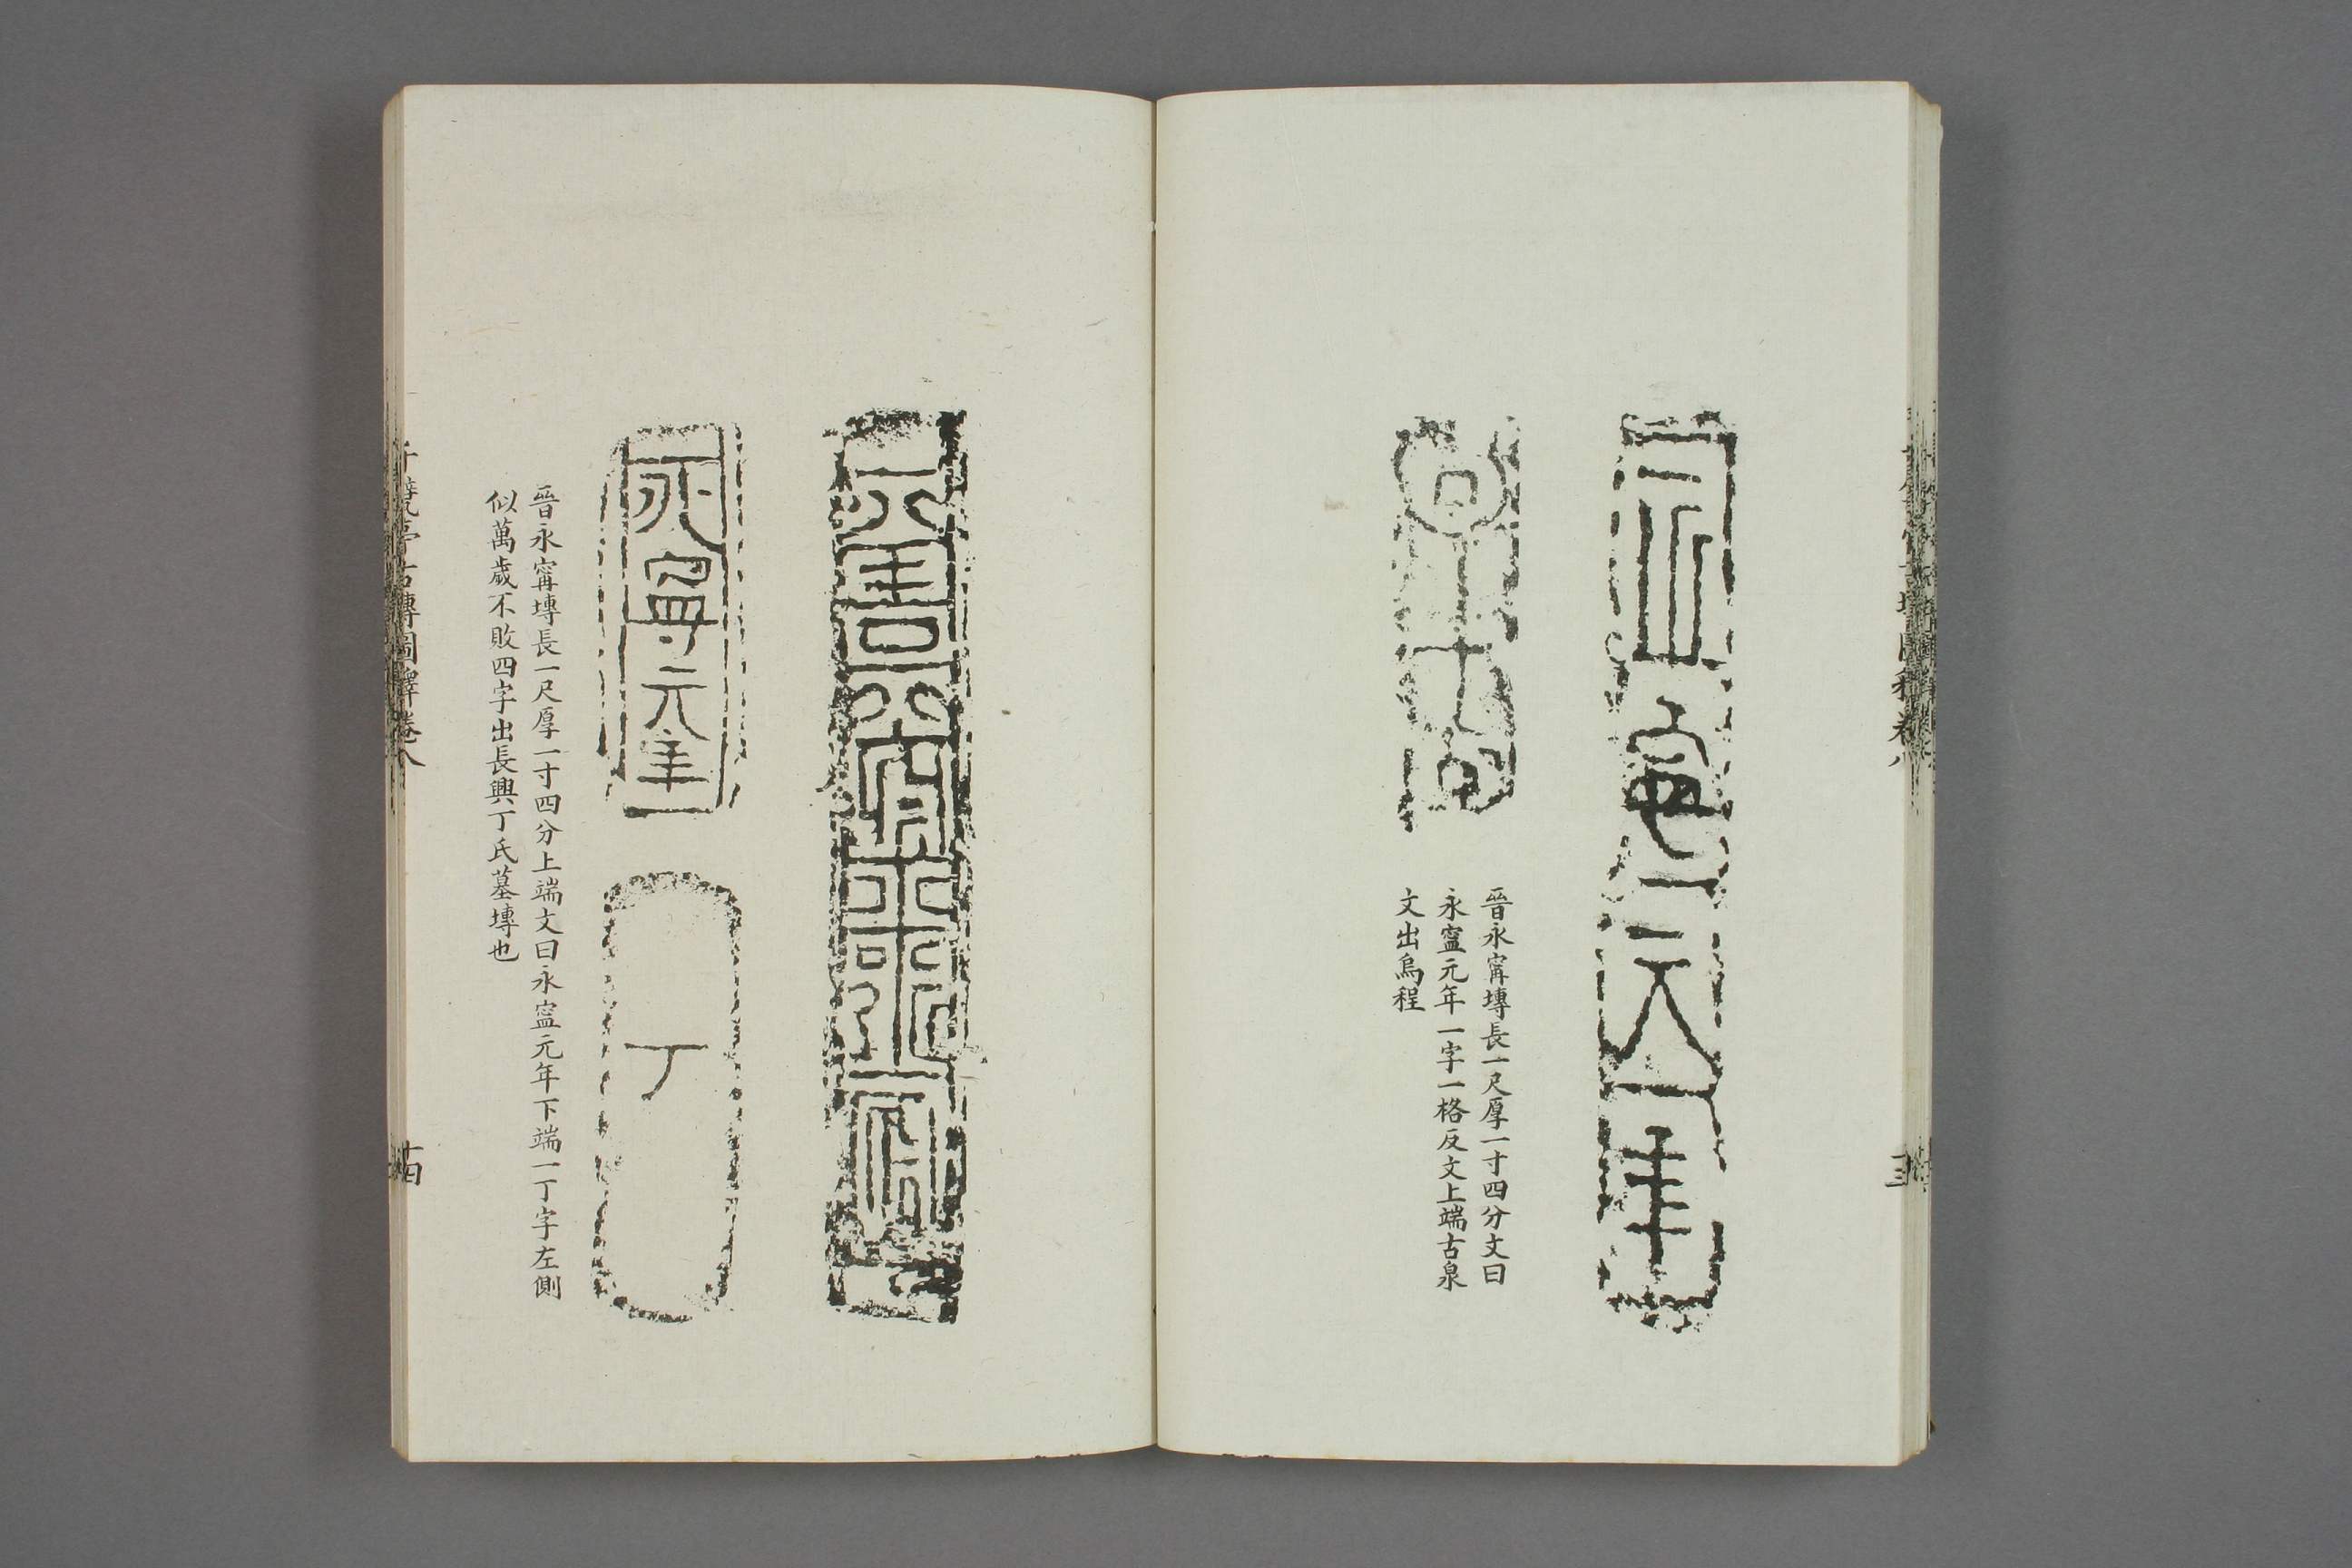 晉永甯塼長一尺厚一寸四分文曰
永寍元年一字一格反文上端古泉
文出烏程
永寍元年
丁
晉永甯塼長一尺厚一寸四分上端文曰永寍元年下端一丁字左側
似萬歲不敗四字出長興丁氏墓塼也
千甓亭古塼圖釋卷八
十四